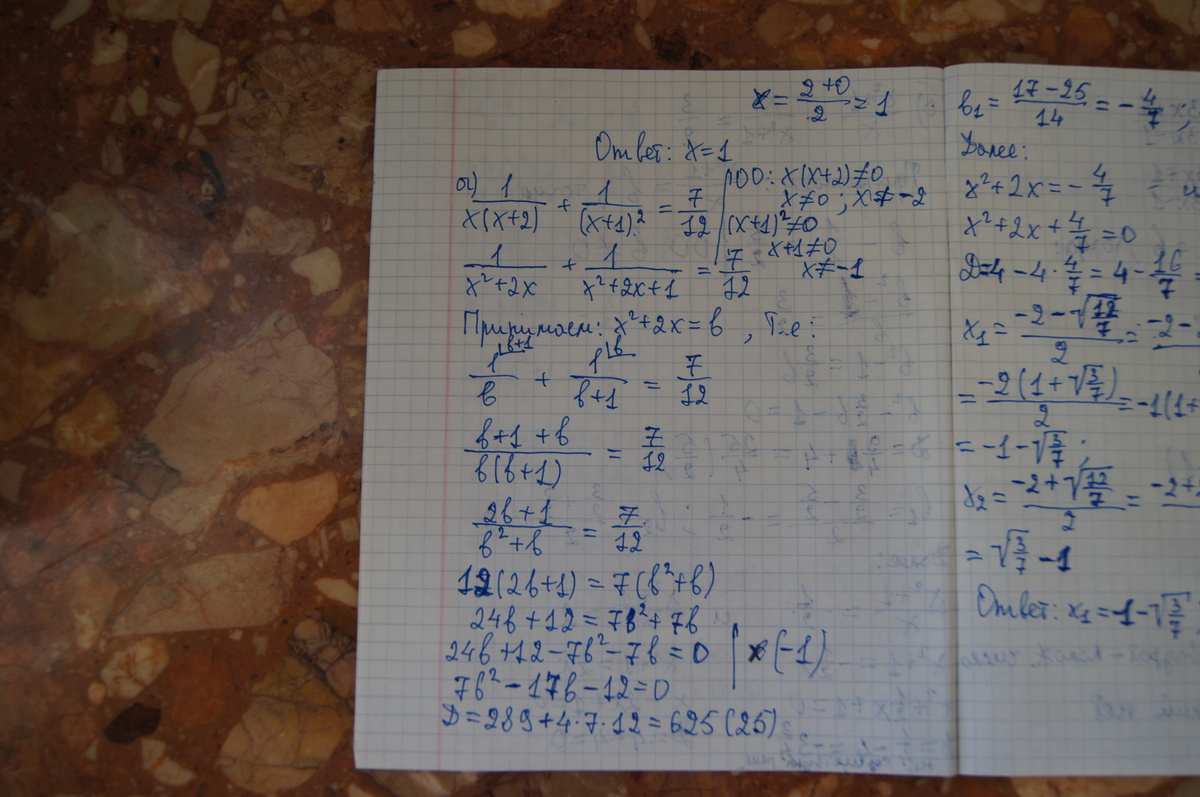 x = (2+0)/2 = 1
Ответ: x=1
а) 1/(x(x+2)) + 1/(x+1)² = 7/12
ОО: x(x+2)≠0
x≠0 ; x≠-2
(x+1)²≠0
x+1≠0
x≠-1
1/(x²+2x) + 1/(x²+2x+1) = 7/12
Принимаем: x²+2x=в , т.е:
1/в ⌊в+1 + 1/(в+1) ⌊в = 7/12
(в+1+в)/(в(в+1)) = 7/12
(2в+1)/(в²+в) = 7/12
12(2в+1) = 7(в²+в)
24в+12 = 7в²+7в
24в+12-7в²-7в=0 | (-1)
7в²-17в-12=0
D=289+4·7·12=625(25)
в₁ = (17-25)/14 = -4/7 ;
Далее:
x²+2x=-4/7
x²+2x+4/7=0
D=4-4·4/7=4-16/7=
x₁ = (-2-√(12/7))/2 = -2-
= (-2(1+√(3/7)))/2 = -1(1+
= -1-√(3/7) ;
x₂ = (-2+√(12/7))/2 = -2+
= √(3/7) -1
Ответ: x₁=-1-√(3/7)